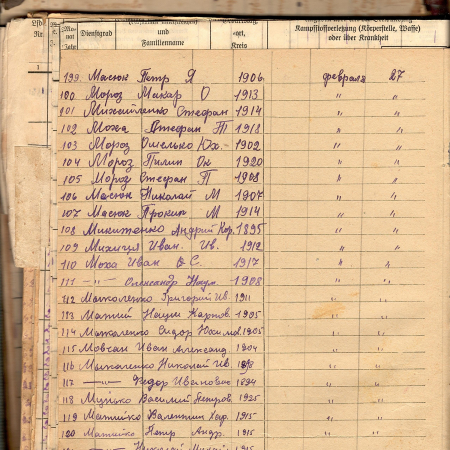 Lfd Nr. Mo- nat Jahr Dienstgrad und Familienname ort, Kreis Kampfstoffverletzung (Körperstelle, Waffe) oder über Krankheit
1
199. Масюк Петр Я 1906 февраля 27
100 Мороз Макар О 1913 " "
101 Михайленко Стефан 1914 " "
102 Моха Стефан Т 1918 " "
103 Мороз Омелько Юх. 1902 " "
104 Мороз Пилип Он 1920 " "
105 Мороз Стефан П 1908 " "
106 Масюк Николай М 1907 " "
107 Масюк Прокип М 1914 " "
108 Микитенко Андрий Кор. 1895 " "
109 Михиця Иван. Ив. 1912 " "
110 Моха Иван О.С. 1917 " "
111 —"— Олександр Наум 1908 " "
112 Маколенко Григорий Ив. 1911 " "
113 Маттий Наум Карпов. 1905 " "
114 Маколенко Сидор Юхимов. 1905 " "
115 Мовчан Иван Александ. 1904 " "
116 Николай Ив. " "
117 —"— Федор Иванович 1894 " "
118 Василий Петров. 1925 " "
119 Матийко Валентин Хар. 1915 " "
120 Матийко Петр Андр. 1915 " "